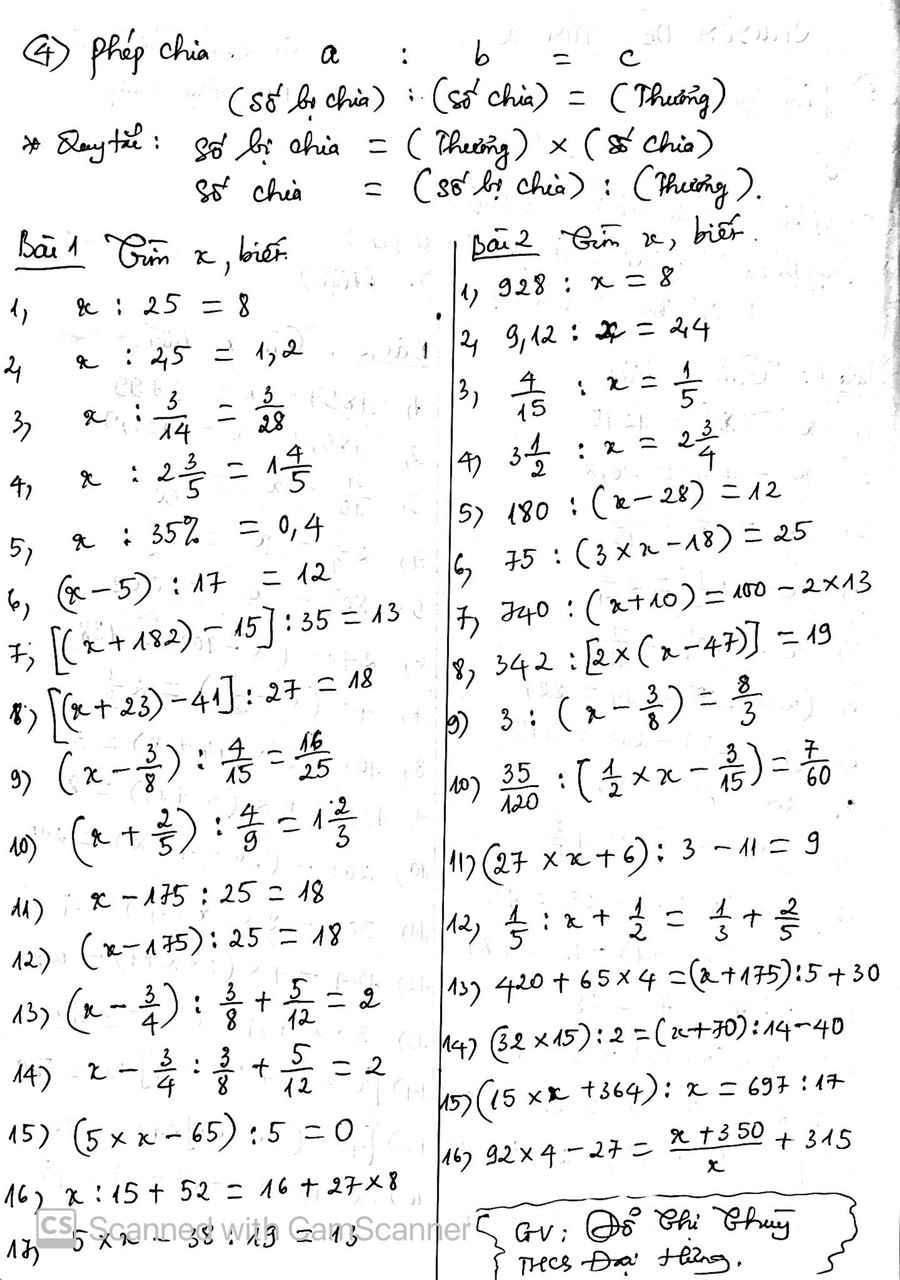 ④ phép chia a : b = c
(số bị chia) : (số chia) = (Thương)
* Quy tắc: số bị chia = (Thương) × (số chia)
số chia = (số bị chia) : (Thương).
Bài 1 Tìm x, biết.
1, x : 25 = 8
2, x : 2,5 = 1,2
3, x : 3/14 = 3/28
4, x : 2 3/5 = 1 4/5
5, x : 35% = 0,4
6, (x-5) : 17 = 12
7; [(x+182) - 15] : 35 = 13
8; [(x+23) - 41] : 27 = 18
9) (x - 3/8) : 4/15 = 16/25
10) (x + 2/5) : 4/9 = 1 2/3
11) x - 175 : 25 = 18
12) (x-175) : 25 = 18
13) (x - 3/4) : 3/8 + 5/12 = 2
14) x - 3/4 : 3/8 + 5/12 = 2
15) (5 × x - 65) : 5 = 0
16) x : 15 + 52 = 16 + 27 × 8
17) 5 × x - 38 : 13 = 13
Bài 2 Tìm x, biết.
1) 928 : x = 8
2, 9,12 : x = 2,4
3, 4/15 : x = 1/5
4) 3 1/2 : x = 2 3/4
5) 180 : (x - 28) = 12
6, 75 : (3 × x - 18) = 25
7, 740 : (x+10) = 100 - 2×13
8, 342 : [2 × (x - 47)] = 19
9) 3 : (x - 3/8) = 8/3
10) 35/120 : (1/2 × x - 3/15) = 7/60
11) (27 × x + 6) : 3 - 11 = 9
12, 1/5 : x + 1/2 = 1/3 + 2/5
13) 420 + 65 × 4 = (x+175) : 5 + 30
14) (32 × 15) : 2 = (x+70) : 14 - 40
15) (15 × x + 364) : x = 697 : 17
16) 92 × 4 - 27 = x + 350/x + 315
GV: Đỗ Thị Thuý
THCS Đại Hưng.
CS Scanned with CamScanner